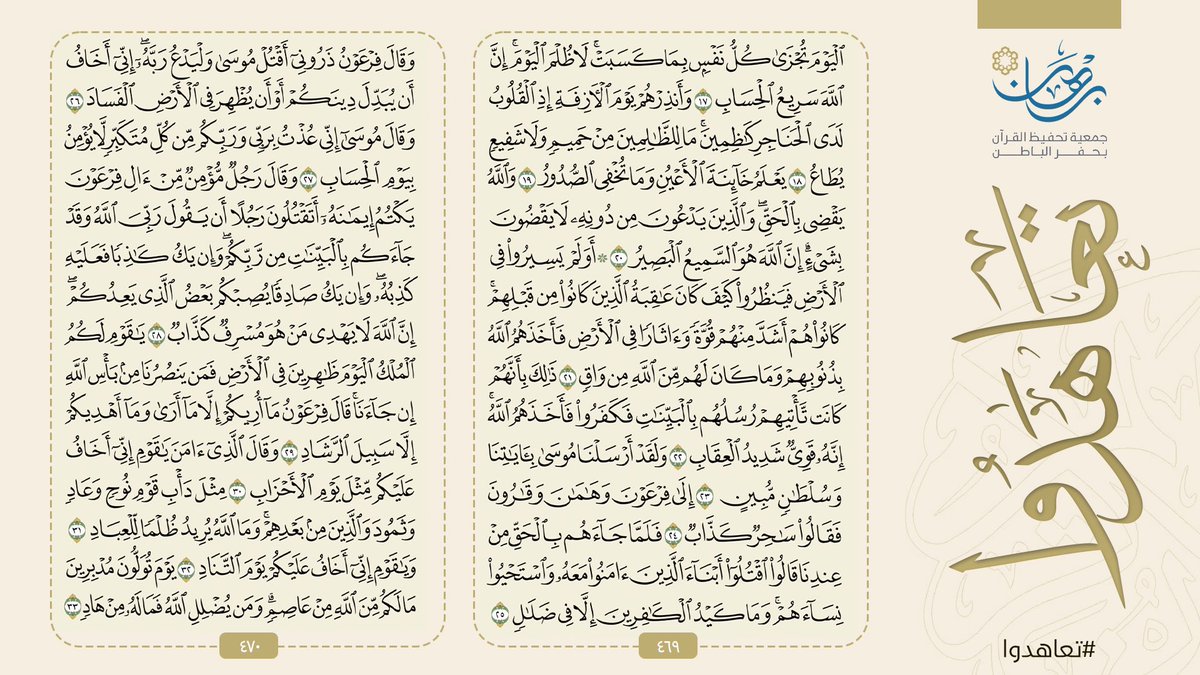 برهان
جمعية تحفيظ القرآن
بحفر الباطن
تعاهدوا
#تعاهدوا
ٱلۡيَوۡمَ تُجۡزَىٰ كُلُّ نَفۡسِۭ بِمَا كَسَبَتۡۚ لَا ظُلۡمَ ٱلۡيَوۡمَۚ إِنَّ
ٱللَّهَ سَرِيعُ ٱلۡحِسَابِ ١٧ وَأَنذِرۡهُمۡ يَوۡمَ ٱلۡأٓزِفَةِ إِذِ ٱلۡقُلُوبُ
لَدَى ٱلۡحَنَاجِرِ كَٰظِمِينَۚ مَا لِلظَّٰلِمِينَ مِنۡ حَمِيمٖ وَلَا شَفِيعٖ
يُطَاعُ ١٨ يَعۡلَمُ خَآئِنَةَ ٱلۡأَعۡيُنِ وَمَا تُخۡفِي ٱلصُّدُورُ ١٩ وَٱللَّهُ
يَقۡضِي بِٱلۡحَقِّۖ وَٱلَّذِينَ يَدۡعُونَ مِن دُونِهِۦ لَا يَقۡضُونَ
بِشَيۡءٍۗ إِنَّ ٱللَّهَ هُوَ ٱلسَّمِيعُ ٱلۡبَصِيرُ ٢٠ ۞ أَوَلَمۡ يَسِيرُواْ فِي
ٱلۡأَرۡضِ فَيَنظُرُواْ كَيۡفَ كَانَ عَٰقِبَةُ ٱلَّذِينَ كَانُواْ مِن قَبۡلِهِمۡۚ
كَانُواْ هُمۡ أَشَدَّ مِنۡهُمۡ قُوَّةٗ وَءَاثَارٗا فِي ٱلۡأَرۡضِ فَأَخَذَهُمُ ٱللَّهُ
بِذُنُوبِهِمۡ وَمَا كَانَ لَهُم مِّنَ ٱللَّهِ مِن وَاقٖ ٢١ ذَٰلِكَ بِأَنَّهُمۡ
كَانَت تَّأۡتِيهِمۡ رُسُلُهُم بِٱلۡبَيِّنَٰتِ فَكَفَرُواْ فَأَخَذَهُمُ ٱللَّهُۚ
إِنَّهُۥ قَوِيّٞ شَدِيدُ ٱلۡعِقَابِ ٢٢ وَلَقَدۡ أَرۡسَلۡنَا مُوسَىٰ بِـَٔايَٰتِنَا
وَسُلۡطَٰنٖ مُّبِينٍ ٢٣ إِلَىٰ فِرۡعَوۡنَ وَهَٰمَٰنَ وَقَٰرُونَ
فَقَالُواْ سَٰحِرٞ كَذَّابٞ ٢٤ فَلَمَّا جَآءَهُم بِٱلۡحَقِّ مِنۡ
عِندِنَا قَالُواْ ٱقۡتُلُوٓاْ أَبۡنَآءَ ٱلَّذِينَ ءَامَنُواْ مَعَهُۥ وَٱسۡتَحۡيُواْ
نِسَآءَهُمۡۚ وَمَا كَيۡدُ ٱلۡكَٰفِرِينَ إِلَّا فِي ضَلَٰلٖ ٢٥
٤٦٩
وَقَالَ فِرۡعَوۡنُ ذَرُونِيٓ أَقۡتُلۡ مُوسَىٰ وَلۡيَدۡعُ رَبَّهُۥٓۖ إِنِّيٓ أَخَافُ
أَن يُبَدِّلَ دِينَكُمۡ أَوۡ أَن يُظۡهِرَ فِي ٱلۡأَرۡضِ ٱلۡفَسَادَ ٢٦
وَقَالَ مُوسَىٰٓ إِنِّي عُذۡتُ بِرَبِّي وَرَبِّكُم مِّن كُلِّ مُتَكَبِّرٖ لَّا يُؤۡمِنُ
بِيَوۡمِ ٱلۡحِسَابِ ٢٧ وَقَالَ رَجُلٞ مُّؤۡمِنٞ مِّنۡ ءَالِ فِرۡعَوۡنَ
يَكۡتُمُ إِيمَٰنَهُۥٓ أَتَقۡتُلُونَ رَجُلًا أَن يَقُولَ رَبِّيَ ٱللَّهُ وَقَدۡ
جَآءَكُم بِٱلۡبَيِّنَٰتِ مِن رَّبِّكُمۡۖ وَإِن يَكُ كَٰذِبٗا فَعَلَيۡهِ
كَذِبُهُۥۖ وَإِن يَكُ صَادِقٗا يُصِبۡكُم بَعۡضُ ٱلَّذِي يَعِدُكُمۡۖ
إِنَّ ٱللَّهَ لَا يَهۡدِي مَنۡ هُوَ مُسۡرِفٞ كَذَّابٞ ٢٨ يَٰقَوۡمِ لَكُمُ
ٱلۡمُلۡكُ ٱلۡيَوۡمَ ظَٰهِرِينَ فِي ٱلۡأَرۡضِ فَمَن يَنصُرُنَا مِنۢ بَأۡسِ ٱللَّهِ
إِن جَآءَنَاۚ قَالَ فِرۡعَوۡنُ مَآ أُرِيكُمۡ إِلَّا مَآ أَرَىٰ وَمَآ أَهۡدِيكُمۡ
إِلَّا سَبِيلَ ٱلرَّشَادِ ٢٩ وَقَالَ ٱلَّذِيٓ ءَامَنَ يَٰقَوۡمِ إِنِّيٓ أَخَافُ
عَلَيۡكُم مِّثۡلَ يَوۡمِ ٱلۡأَحۡزَابِ ٣٠ مِثۡلَ دَأۡبِ قَوۡمِ نُوحٖ وَعَادٖ
وَثَمُودَ وَٱلَّذِينَ مِنۢ بَعۡدِهِمۡۚ وَمَا ٱللَّهُ يُرِيدُ ظُلۡمٗا لِّلۡعِبَادِ ٣١
وَيَٰقَوۡمِ إِنِّيٓ أَخَافُ عَلَيۡكُمۡ يَوۡمَ ٱلتَّنَادِ ٣٢ يَوۡمَ تُوَلُّونَ مُدۡبِرِينَ
مَا لَكُم مِّنَ ٱللَّهِ مِنۡ عَاصِمٖۗ وَمَن يُضۡلِلِ ٱللَّهُ فَمَا لَهُۥ مِنۡ هَادٖ ٣٣
٤٧٠